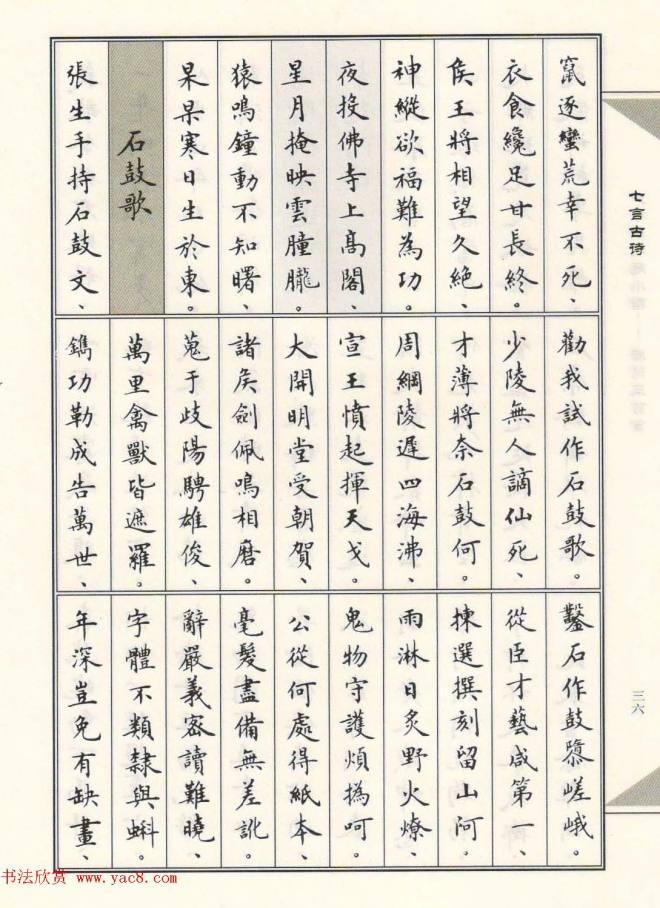 七言古诗
三六
竄逐蠻荒幸不死、
衣食纔足甘長終。
侯王將相望久絕、
神縱欲福難為功。
夜投佛寺上高閣、
星月掩映雲朣朧。
猿鳴鐘動不知曙、
杲杲寒日生於東。
石鼓歌
張生手持石鼓文、
勸我試作石鼓歌。
少陵無人謫仙死、
才薄將奈石鼓何。
周綱陵遲四海沸、
宣王憤起揮天戈。
大開明堂受朝賀、
諸侯劍佩鳴相磨。
蒐于歧陽騁雄俊、
萬里禽獸皆遮羅。
鐫功勒成告萬世、
鑿石作鼓隳嵯峨。
從臣才藝咸第一、
揀選撰刻留山河。
雨淋日炙野火燎、
鬼物守護煩撝呵。
公從何處得紙本、
毫髮盡備無差訛。
辭嚴義密讀難曉、
字體不類隸與蝌。
年深豈免有缺畫、
书法欣赏 www.yac8.com